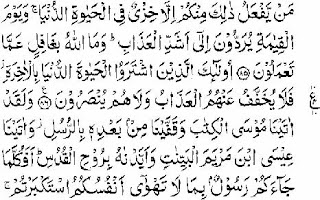 مَنْ يَّفْعَلُ ذٰلِكَ مِنْكُمْ اِلَّا خِزْيٌ فِى الْحَيٰوةِ الدُّنْيَا ۚ وَيَوْمَ
الْقِيٰمَةِ يُرَدُّوْنَ اِلٰٓى اَشَدِّ الْعَذَابِ ؕ وَمَا اللّٰهُ بِغَافِلٍ عَمَّا
تَعْمَلُوْنَ ﴿۸۵﴾ اُولٰٓئِكَ الَّذِيْنَ اشْتَرَوُا الْحَيٰوةَ الدُّنْيَا بِالْاٰخِرَةِ ؗ
فَلَا يُخَفَّفُ عَنْهُمُ الْعَذَابُ وَلَا هُمْ يُنْصَرُوْنَ ﴿۸۶﴾ وَلَقَدْ
اٰتَيْنَا مُوْسَى الْكِتٰبَ وَقَفَّيْنَا مِنْۢ بَعْدِهٖ بِالرُّسُلِ ؗ وَاٰتَيْنَا
عِيْسَى ابْنَ مَرْيَمَ الْبَيِّنٰتِ وَاَيَّدْنٰهُ بِرُوْحِ الْقُدُسِ ؕ اَفَكُلَّمَا
جَآءَكُمْ رَسُوْلٌۢ بِمَا لَا تَهْوٰٓى اَنْفُسُكُمُ اسْتَكْبَرْتُمْ ۚ